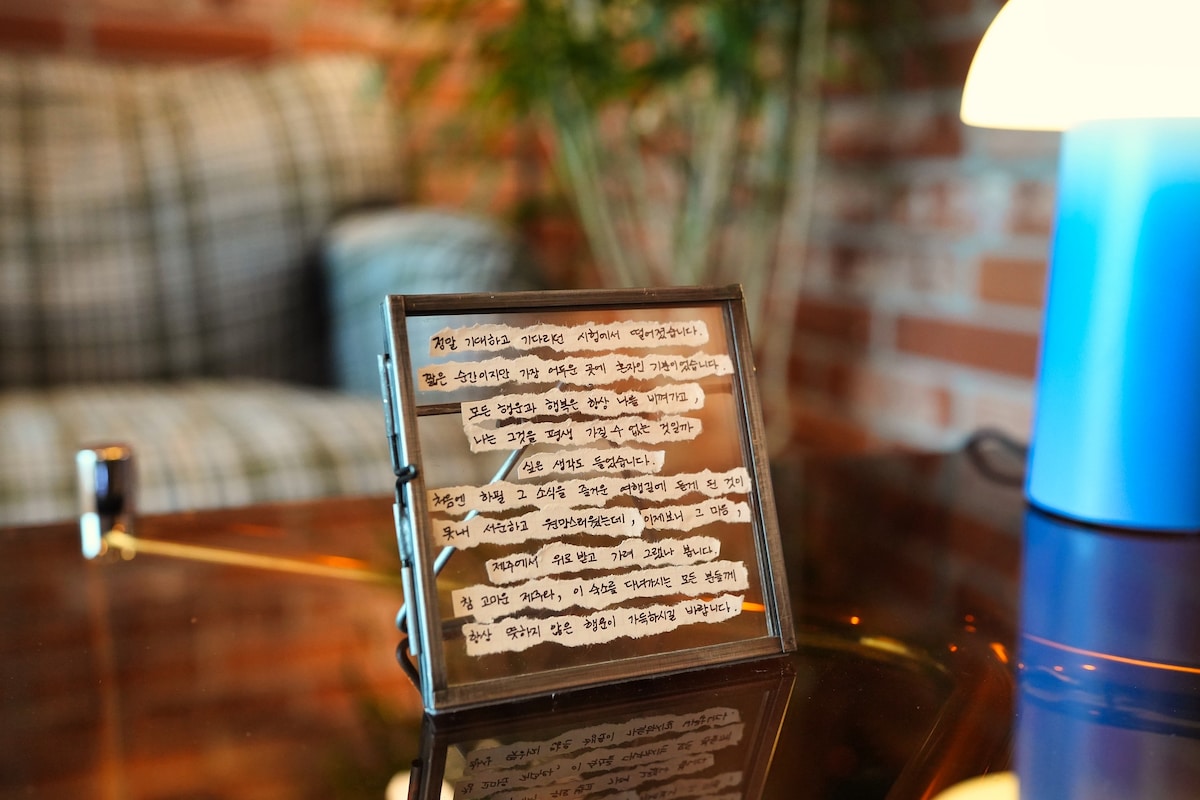 정말 기대하고 기다리던 시험에서 떨어졌습니다.
짧은 순간이지만 가장 어두운 곳에 혼자인 기분이었습니다.
모든 행운과 행복은 항상 나를 비껴가고,
나는 그것을 평생 가질 수 없는 것일까
싶은 생각도 들었습니다.
처음엔 하필 그 소식을 즐거운 여행길에 듣게 된 것이
못내 서운하고 원망스러웠는데, 이제보니 그 마음,
제주에서 위로 받고 가려 그랬나 봅니다.
참 고마운 제주라, 이 숙소를 다녀가시는 모든 분들께
항상 뜻하지 않은 행운이 가득하시길 바랍니다.